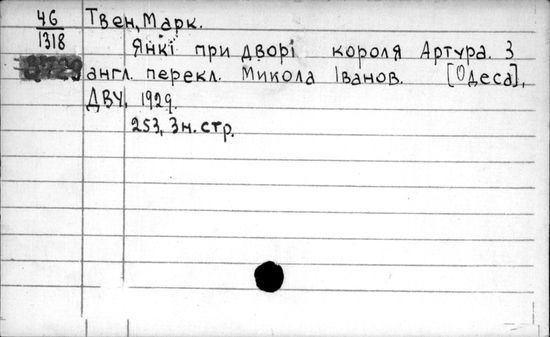 46 Твен, Марк.
1318 Янкі при дворі короля Артура. З
англ. перекл. Микола Іванов. [Одеса],
ДВУ, 1929.
253, 3 н. стр.